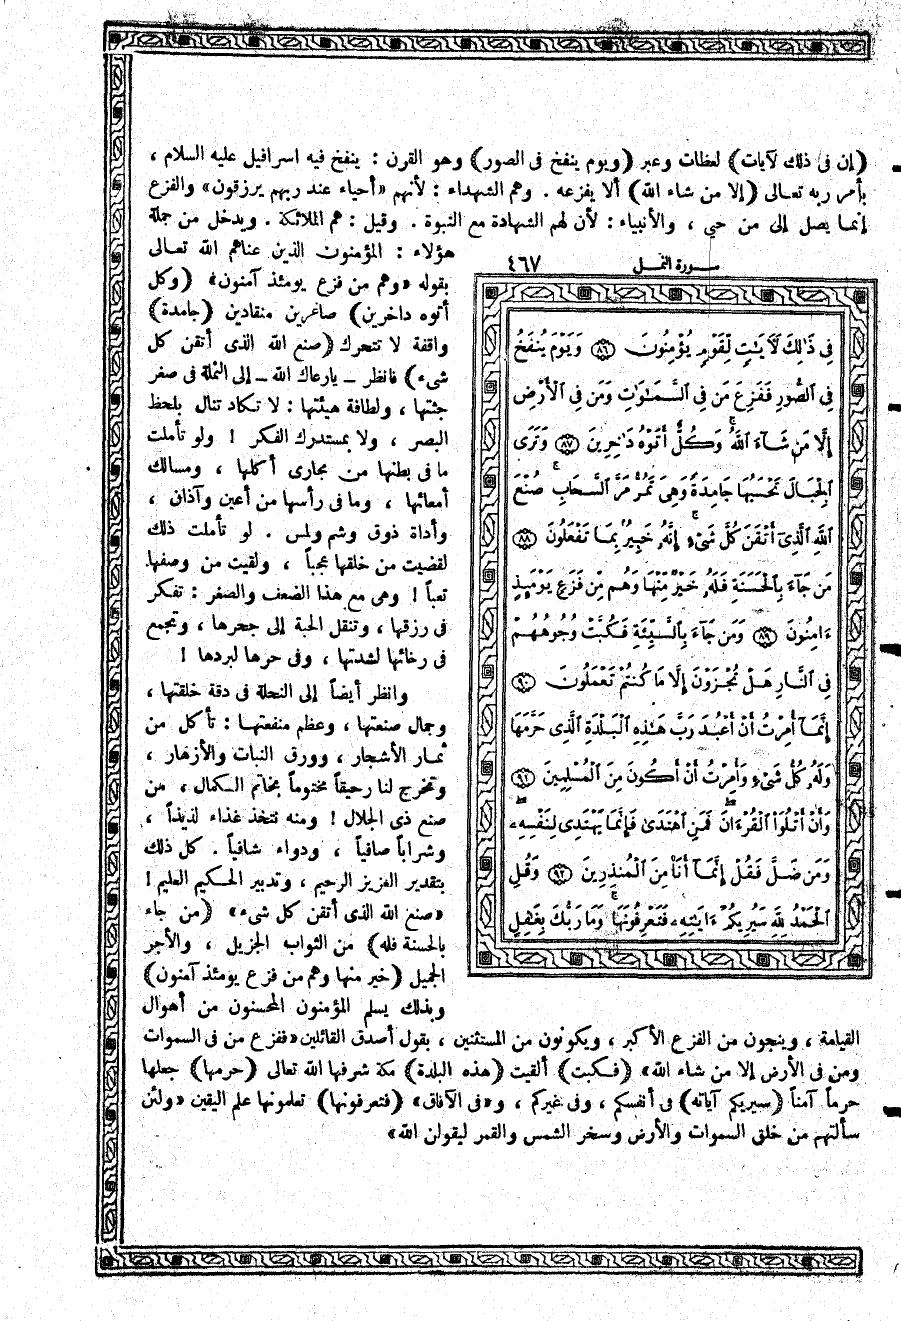 (إن فى ذلك لآيات) لعظات وعبر (ويوم ينفخ فى الصور) وهو القرن : ينفخ فيه اسرافيل عليه السلام ،
بأمر ربه تعالى (إلا من شاء الله) ألا يفزعه . وهم الشهداء : لأنهم «أحياء عند ربهم يرزقون» والفزع
إنما يصل إلى من حى ، والأنبياء : لأن لهم الشهادة مع النبوة . وقيل : هم الملائكة . ويدخل من جملة
هؤلاء : المؤمنون الذين عناهم الله تعالى
بقوله «وهم من فزع يومئذ آمنون» (وكل
أتوه داخرين) صاغرين منقادين (جامدة)
واقفة لا تتحرك (صنع الله الذى أتقن كل
شىء) فانظر ــ يارعاك الله ــ إلى النملة فى صغر
جثتها ، ولطافة هيئتها : لا تكاد تنال بلحظ
البصر ، ولا بمستدرك الفكر ! ولو تأملت
ما فى بطنها من مجارى أكلها ، ومسالك
أمعائها ، وما فى رأسها من أعين وآذان ،
وأداة ذوق وشم ولمس . لو تأملت ذلك
لقضيت من خلقها عجباً ، ولقيت من وصفها
تعباً ! وهى مع هذا الضعف والصغر : تفكر
فى رزقها ، وتنقل الحبة إلى جحرها ، وتجمع
فى رخائها لشدتها ، وفى حرها لبردها !
وانظر أيضاً إلى النحلة فى دقة خلقتها ،
وجمال صنعتها ، وعظم منفعتها : تأكل من
ثمار الأشجار ، وورق النبات والأزهار ،
وتخرج لنا رحيقاً مختوماً بخاتم الكمال ، من
صنع ذى الجلال ! ومنه نتخذ غذاء لذيذاً ،
وشراباً صافياً ، ودواء شافياً . كل ذلك
بتقدير العزيز الرحيم ، وتدبير الحكيم العليم !
«صنع الله الذى أتقن كل شىء» (من جاء
بالحسنة فله) من الثواب الجزيل ، والأجر
الجميل (خير منها وهم من فزع يومئذ آمنون)
وبذلك يسلم المؤمنون المحسنون من أهوال
القيامة ، وينجون من الفزع الأكبر ، ويكونون من المستثنين ، بقول أصدق القائلين «ففزع من فى السموات
ومن فى الأرض إلا من شاء الله» (فكبت) ألقيت (هذه البلدة) مكة شرفها الله تعالى (حرمها) جعلها
حرماً آمناً (سيريكم آياته) فى أنفسكم ، وفى غيركم ، و«فى الآفاق» (فتعرفونها) تعلمونها علم اليقين «ولئن
سألتهم من خلق السموات والأرض وسخر الشمس والقمر ليقولن الله»
سورة النمل ٤٦٧
فِى ذَٰلِكَ لَآيَٰتٍ لِّقَوْمٍ يُؤْمِنُونَ ﴿٨٦﴾ وَيَوْمَ يُنفَخُ
فِى ٱلصُّورِ فَفَزِعَ مَن فِى ٱلسَّمَٰوَٰتِ وَمَن فِى ٱلْأَرْضِ
إِلَّا مَن شَآءَ ٱللَّهُ ۚ وَكُلٌّ أَتَوْهُ دَٰخِرِينَ ﴿٨٧﴾ وَتَرَى
ٱلْجِبَالَ تَحْسَبُهَا جَامِدَةً وَهِىَ تَمُرُّ مَرَّ ٱلسَّحَابِ ۚ صُنْعَ
ٱللَّهِ ٱلَّذِىٓ أَتْقَنَ كُلَّ شَىْءٍ ۚ إِنَّهُۥ خَبِيرٌۢ بِمَا تَفْعَلُونَ ﴿٨٨﴾
مَن جَآءَ بِٱلْحَسَنَةِ فَلَهُۥ خَيْرٌ مِّنْهَا وَهُم مِّن فَزَعٍ يَوْمَئِذٍ
ءَامِنُونَ ﴿٨٩﴾ وَمَن جَآءَ بِٱلسَّيِّئَةِ فَكُبَّتْ وُجُوهُهُمْ
فِى ٱلنَّارِ هَلْ تُجْزَوْنَ إِلَّا مَا كُنتُمْ تَعْمَلُونَ ﴿٩٠﴾
إِنَّمَآ أُمِرْتُ أَنْ أَعْبُدَ رَبَّ هَٰذِهِ ٱلْبَلْدَةِ ٱلَّذِى حَرَّمَهَا
وَلَهُۥ كُلُّ شَىْءٍ وَأُمِرْتُ أَنْ أَكُونَ مِنَ ٱلْمُسْلِمِينَ ﴿٩١﴾
وَأَنْ أَتْلُوَا۟ ٱلْقُرْءَانَ ۖ فَمَنِ ٱهْتَدَىٰ فَإِنَّمَا يَهْتَدِى لِنَفْسِهِۦ ۖ
وَمَن ضَلَّ فَقُلْ إِنَّمَآ أَنَا۠ مِنَ ٱلْمُنذِرِينَ ﴿٩٢﴾ وَقُلِ
ٱلْحَمْدُ لِلَّهِ سَيُرِيكُمْ ءَايَٰتِهِۦ فَتَعْرِفُونَهَا ۚ وَمَا رَبُّكَ بِغَٰفِلٍ